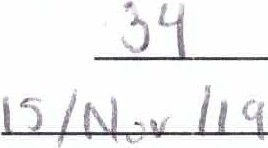 34
15/Nov/19